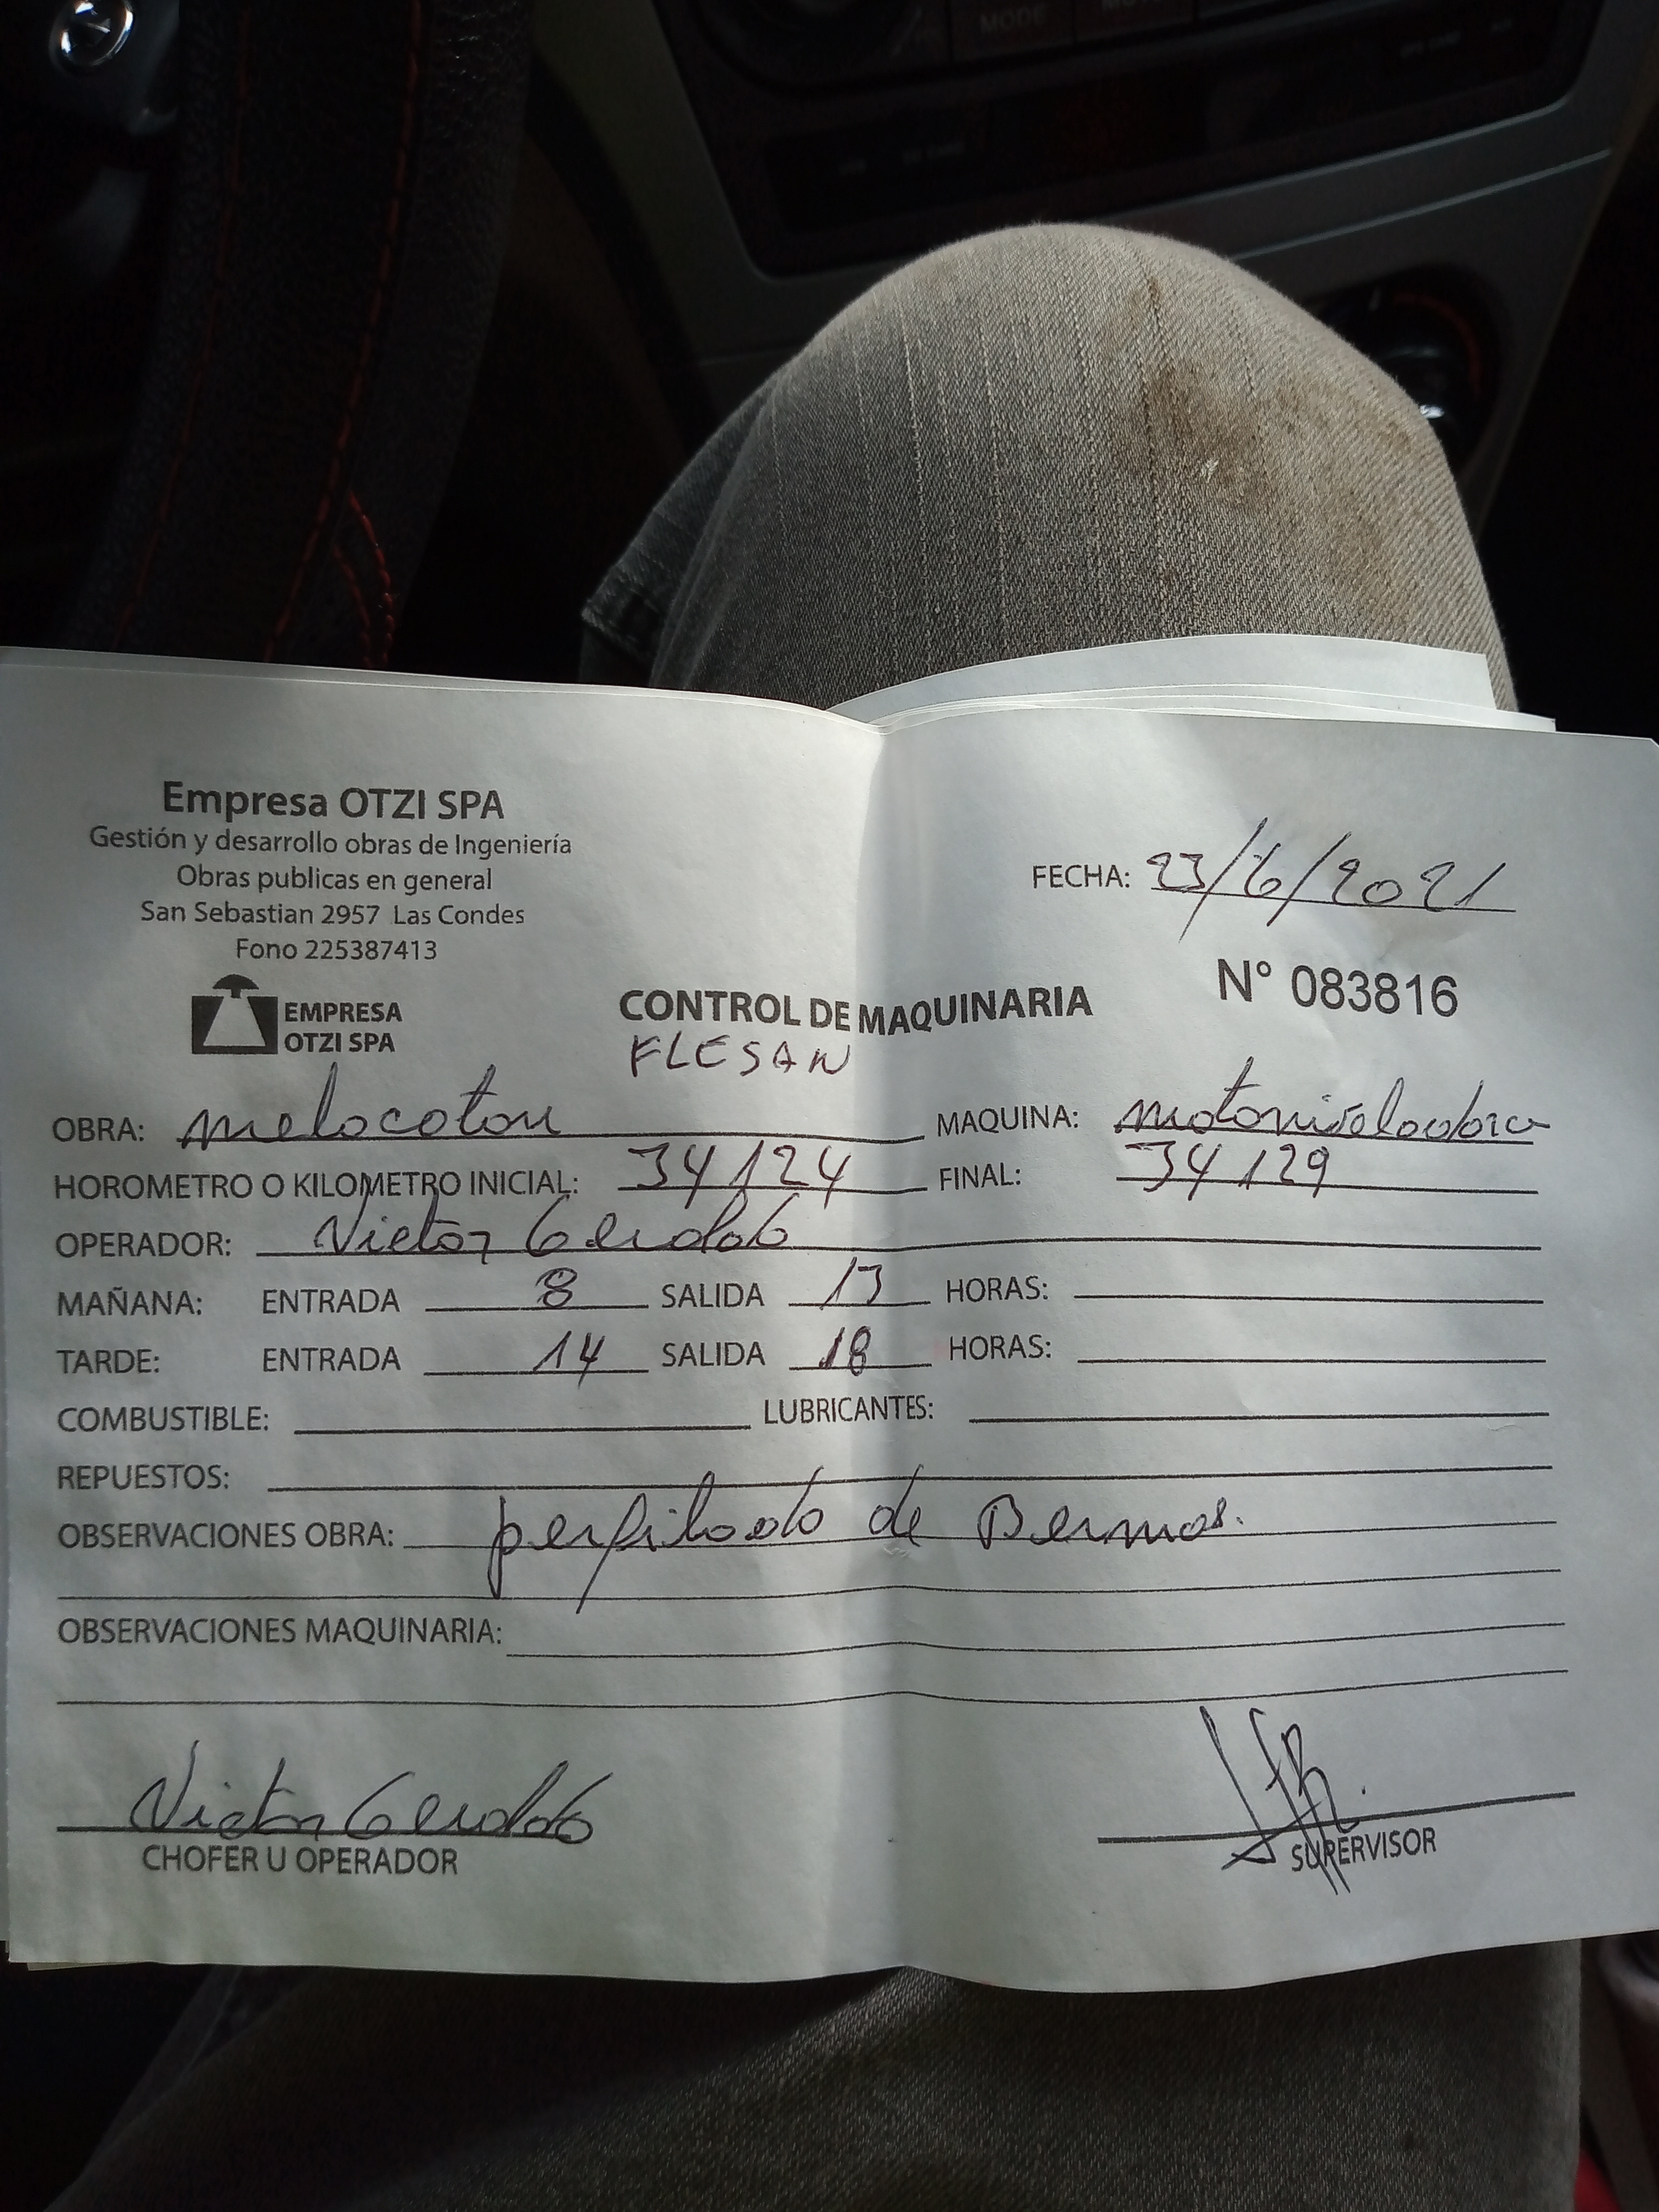 MODE
Empresa OTZI SPA
Gestión y desarrollo obras de Ingeniería
Obras publicas en general
San Sebastian 2957 Las Condes
Fono 225387413
EMPRESA
OTZI SPA
FECHA: 23/6/2021
N° 083816
CONTROL DE MAQUINARIA
FLESAN
OBRA: melocoton MAQUINA: motoniveladora
HOROMETRO O KILOMETRO INICIAL: 34124 FINAL: 34129
OPERADOR: Victor
MAÑANA: ENTRADA 8 SALIDA 13 HORAS:
TARDE: ENTRADA 14 SALIDA 18 HORAS:
COMBUSTIBLE: LUBRICANTES:
REPUESTOS:
OBSERVACIONES OBRA: perfilado de Bermas.
OBSERVACIONES MAQUINARIA:
Victor
CHOFER U OPERADOR
SUPERVISOR